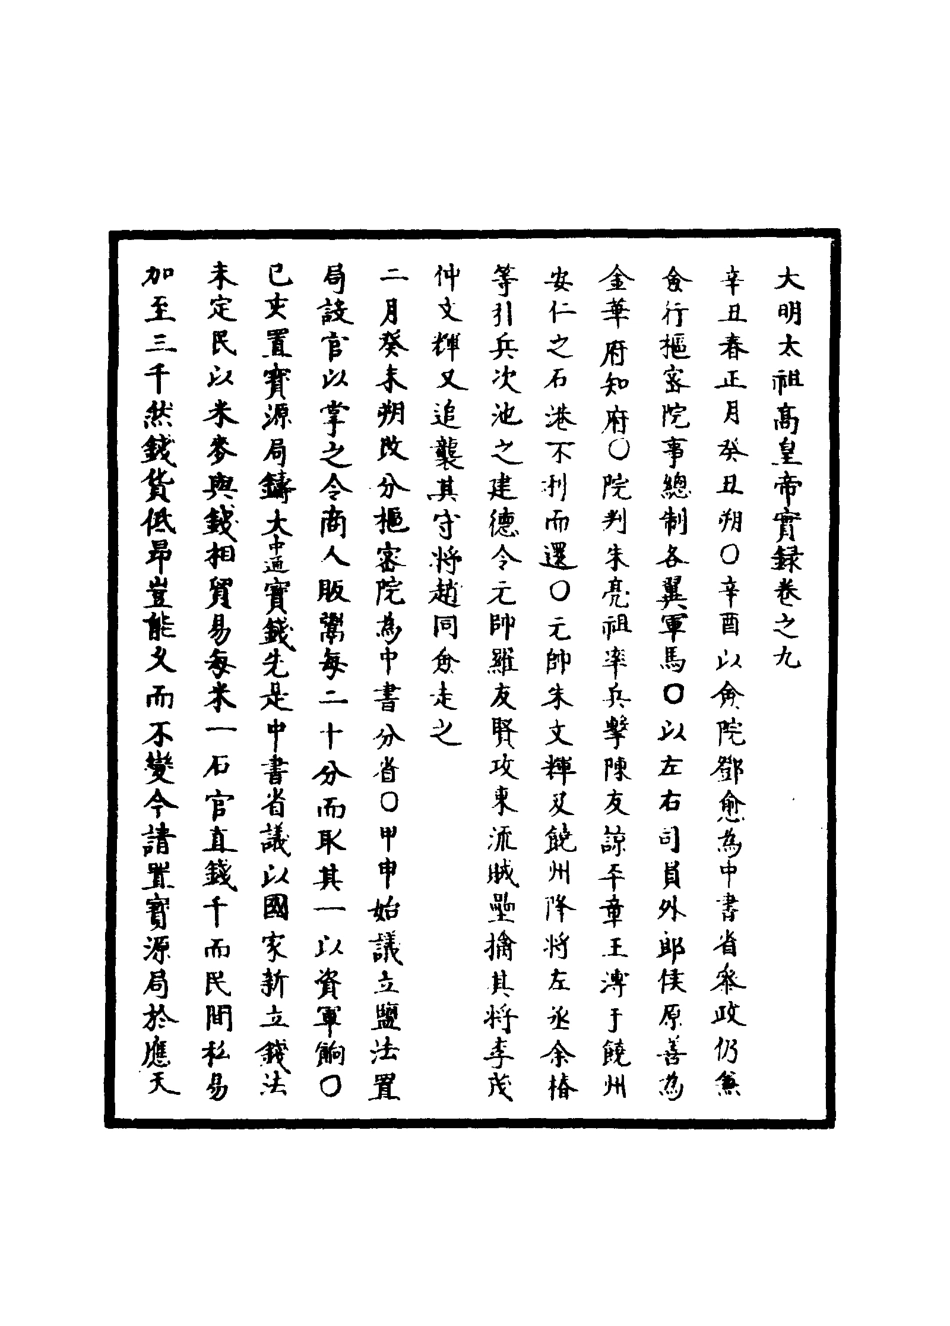 大明太祖高皇帝實錄卷之九
辛丑春正月癸丑朔○辛酉以僉院鄧愈為中書省參政仍兼
僉行樞密院事總制各翼軍馬○以左右司員外郎侯原善為
金華府知府○院判朱亮祖率兵擊陳友諒平章王溥于饒州
安仁之石港不利而還○元帥朱文輝及饒州降將左丞余椿
等引兵次池之建德令元帥羅友賢攻東流賊壘擒其將李茂
仲文輝又追襲其守將趙同僉走之
二月癸未朔改分樞密院為中書分省○甲申始議立鹽法置
局設官以掌之令商人販鬻每二十分而取其一以資軍餉○
已亥置寶源局鑄大中通寶錢先是中書省議以國家新立錢法
未定民以米麥與錢相貿易每米一石官直錢千而民間私易
加至三千然錢貨低昂豈能久而不變今請置寶源局於應天